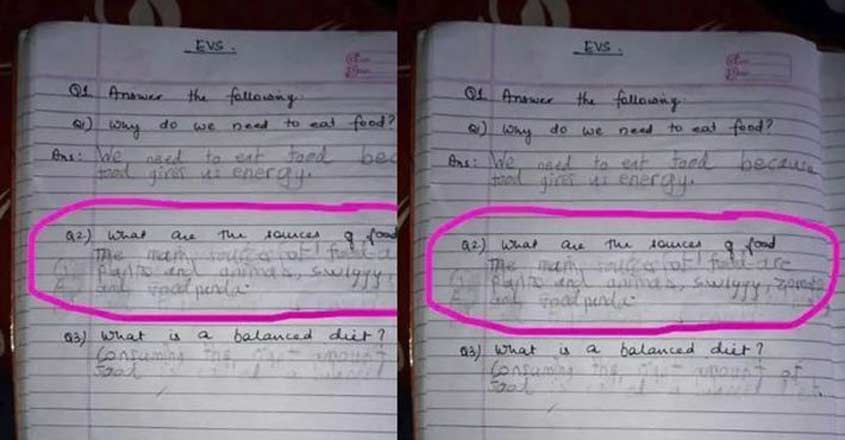 EVS.
Q1 Answer the following.
Q1) Why do we need to eat food?
Ans: We need to eat food bec
food gives us energy.
Q2) What are the sources of food
The main sources of food a
plants and animals, swigyy,
and food panda.
Q3) What is a balanced diet?
Consuming the right amount
food
EVS.
Q1 Answer the following.
Q1) Why do we need to eat food?
Ans: We need to eat food because
food gives us energy.
Q2) What are the sources of food
The main sources of food are
plants and animals, swigyy, zomato
and food panda.
Q3) What is a balanced diet?
Consuming the right amount of
food